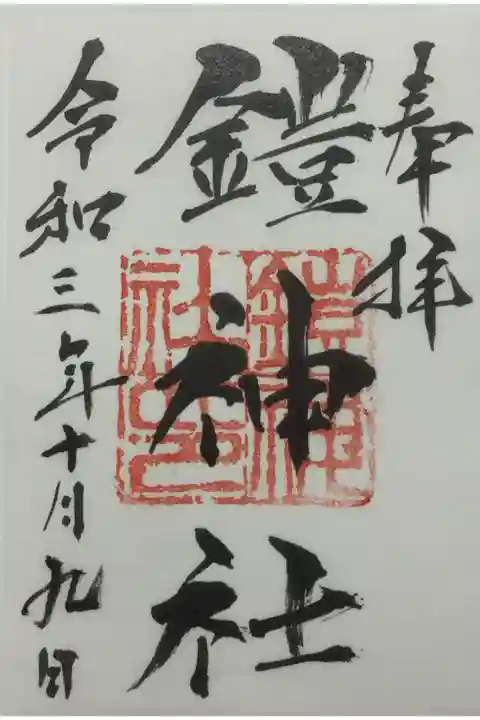 奉拝
鎧神社
鎧神社印
令和三年十月九日